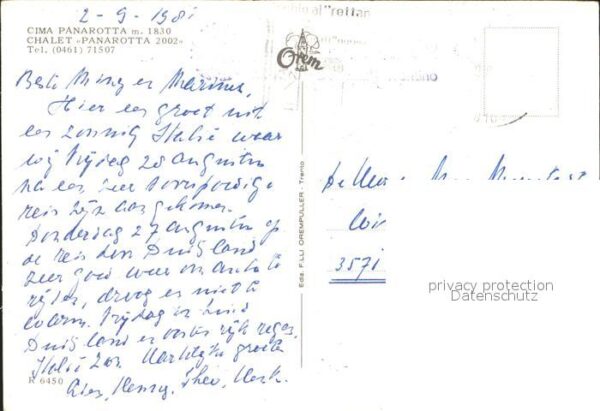 2-9-1981
CIMA PANAROTTA m. 1830
CHALET «PANAROTTA 2002»
Tel. (0461) 71507
Orem
Beste en Marinus,
Hier een groet uit
een zonnig Italië waar
wij Vrijdag 28 augustus
na een zeer voorspoedige
reis zijn aangekomen.
Donderdag 27 augustus op
de reis door Duitsland
zeer goed weer om auto te
rijden, droog en niet te
warm. Vrijdag in Zuid
Duitsland en Oostenrijk regen,
Italië zon. Hartelijke groeten
Henny, Theo, Henk.
R 6450
Ediz. F.LLI OREMPULLER - Trento
De
3571
privacy protection
Datenschutz